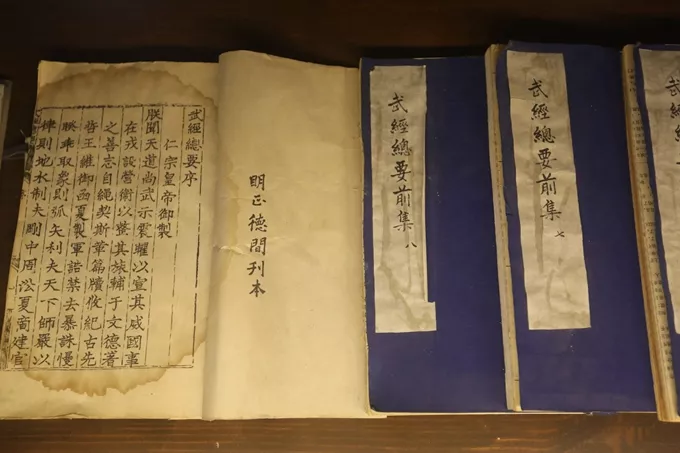 武經總要序
仁宗皇帝御製
朕聞天道尚武示震曜以宣其威國事
在戎設營衛以整其旅輔于文德著
之善志自繩契斯章篇牘攸紀古先
哲王維御函夏製軍詰禁去暴誅慢
睽乖取象則弧矢利夫天下師嚴以
律則地水制夫剛中周㳂夏商建官
明正德間刊本
武經總要前集 八
武經總要前集 七
武經總要